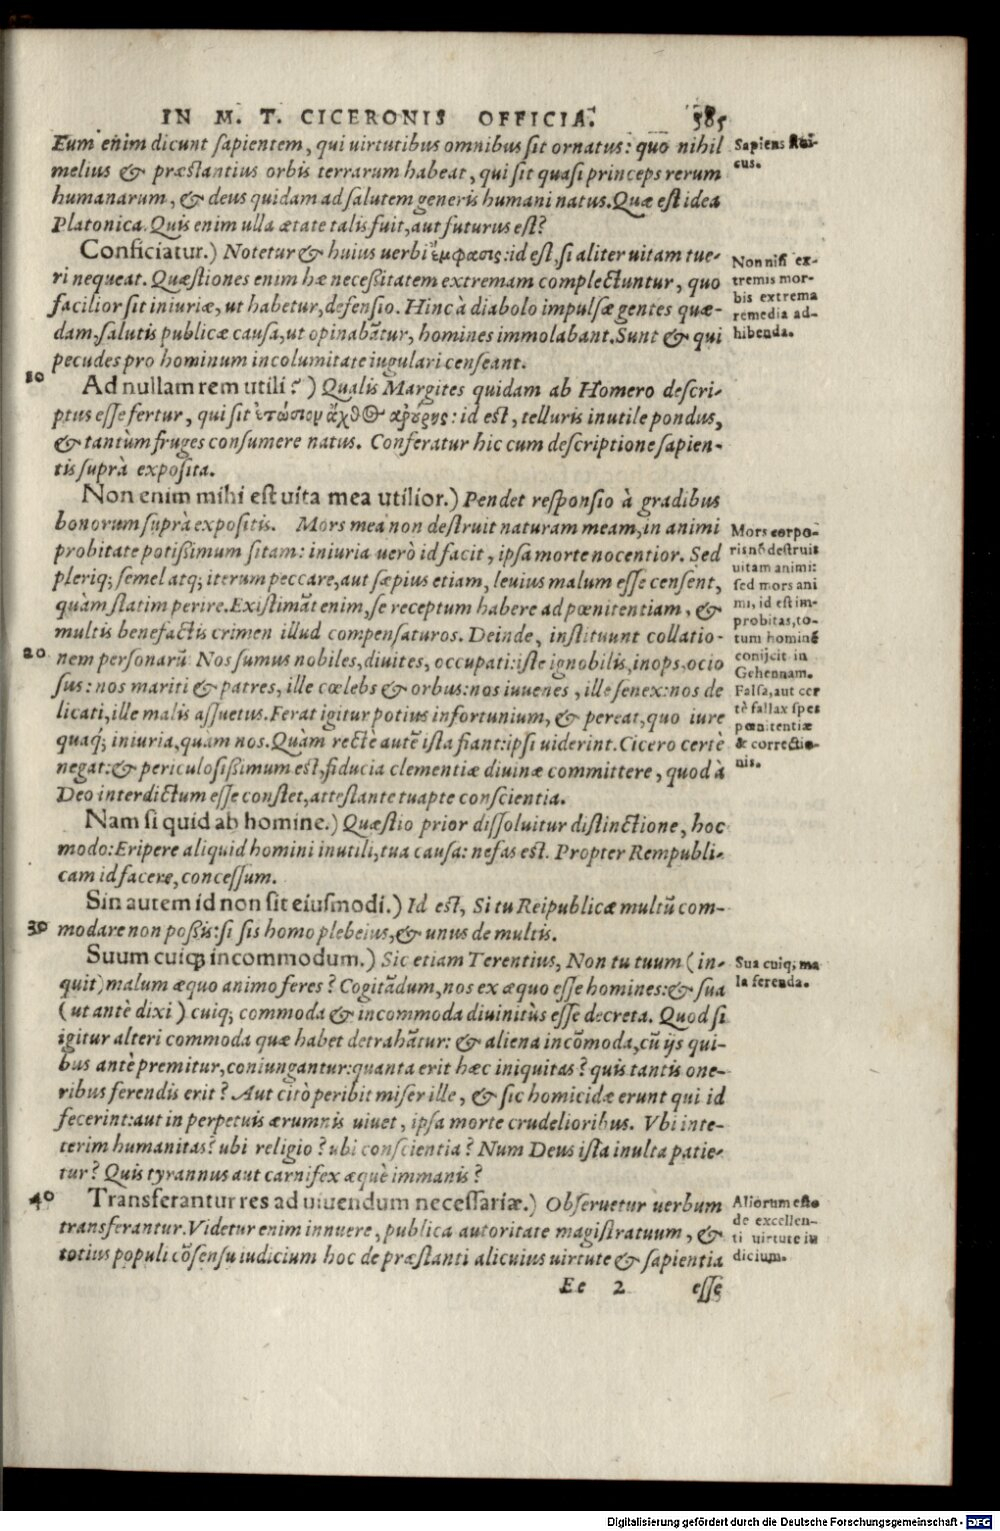 IN M. T. CICERONIS OFFICIA. 385
Eum enim dicunt sapientem, qui uirtutibus omnibus sit ornatus: quo nihil
melius & præstantius orbis terrarum habeat, qui sit quasi princeps rerum
humanarum, & deus quidam ad salutem generis humani natus. Quæ est idea
Platonica. Quis enim ulla ætate talis fuit, aut futurus est?
Sapiens Stoi-
cus.
Conficiatur.) Notetur & huius uerbi ἔμφασις: id est, si aliter uitam tue-
ri nequeat. Quæstiones enim hæ necessitatem extremam complectuntur, quo
facilior sit iniuriæ, ut habetur, defensio. Hinc à diabolo impulsæ gentes quæ-
dam, salutis publicæ causa, ut opinabātur, homines immolabant. Sunt & qui
pecudes pro hominum incolumitate iugulari censeant.
Non nisi ex-
tremis mor-
bis extrema
remedia ad-
hibenda.
10
Ad nullam rem utili?) Qualis Margites quidam ab Homero descri-
ptus esse fertur, qui sit ἐτώσιον ἄχθος ἀρούρης: id est, telluris inutile pondus,
& tantùm fruges consumere natus. Conferatur hic cum descriptione sapien-
tis suprà exposita.
Non enim mihi est uita mea utilior.) Pendet responsio à gradibus
bonorum suprà expositis. Mors mea non destruit naturam meam, in animi
probitate potissimum sitam: iniuria uerò id facit, ipsa morte nocentior. Sed
pleriq; semel atq; iterum peccare, aut sæpius etiam, leuius malum esse censent,
quàm statim perire. Existimāt enim, se receptum habere ad pœnitentiam, &
multis benefactis crimen illud compensaturos. Deinde, instituunt collatio-
20
nem personarū Nos sumus nobiles, diuites, occupati: iste ignobilis, inops, ocio
sus: nos mariti & patres, ille cœlebs & orbus: nos iuuenes, ille senex: nos de
licati, ille malis assuetus. Ferat igitur potius infortunium, & pereat, quo iure
quaq́; iniuria, quàm nos. Quàm rectè autē ista fiant: ipsi uiderint. Cicero certè
negat: & periculosissimum est, fiducia clementiæ diuinæ committere, quod à
Deo interdictum esse constet, attestante tuapte conscientia.
Mors corpo-
ris nō destruit
uitam animi:
sed mors ani
mi, id est im-
probitas, to-
tum hominē
conijcit in
Gehennam.
Falsa, aut cer
tè fallax spes
pœnitentiæ
& correctio-
nis.
Nam si quid ab homine.) Quæstio prior dissoluitur distinctione, hoc
modo: Eripere aliquid homini inutili, tua causa: nefas est. Propter Rempubli-
cam id facere, concessum.
Sin autem id non sit eiusmodi.) Id est, Si tu Reipublicæ multū com-
30
modare non possis: si sis homo plebeius, & unus de multis.
Suum cuiq; incommodum.) Sic etiam Terentius, Non tu tuum (in-
quit) malum æquo animo feres? Cogitādum, nos ex æquo esse homines: & sua
(ut antè dixi) cuiq; commoda & incommoda diuinitùs esse decreta. Quod si
igitur alteri commoda quæ habet detrahātur: & aliena incōmoda, cū ijs qui-
bus antè premitur, coniungantur: quanta erit hæc iniquitas? quis tantis one-
ribus ferendis erit? Aut citò peribit miser ille, & sic homicidæ erunt qui id
fecerint: aut in perpetuis ærumnis uiuet, ipsa morte crudelioribus. Vbi inte-
terim humanitas? ubi religio? ubi conscientia? Num Deus ista inulta patie-
tur? Quis tyrannus aut carnifex æquè immanis?
Sua cuiq; ma
la ferenda.
40
Transferantur res ad uiuendum necessariæ.) Obseruetur uerbum
transferantur. Videtur enim innuere, publica autoritate magistratuum, &
totius populi cōsensu iudicium hoc de præstanti alicuius uirtute & sapientia
Aliorum esto
de excellen-
ti uirtute iu
dicium.
Ee 2 esse
Digitalisierung gefördert durch die Deutsche Forschungsgemeinschaft - DFG